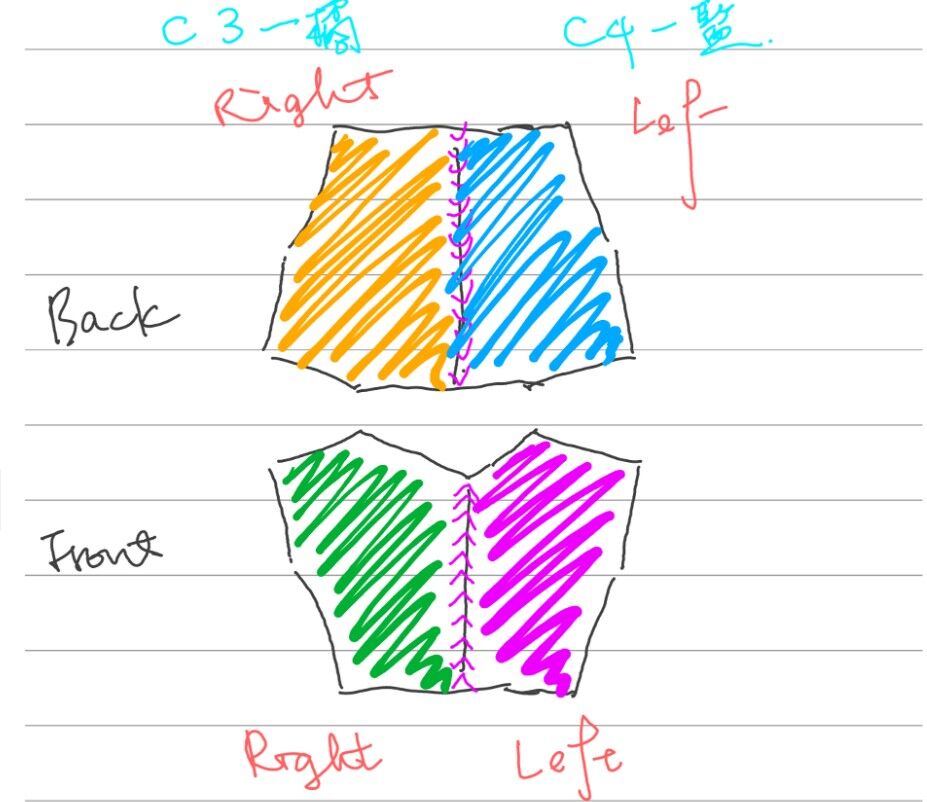 C3-橘
C4-藍.
Right
Left
Back
Front
Right
Left